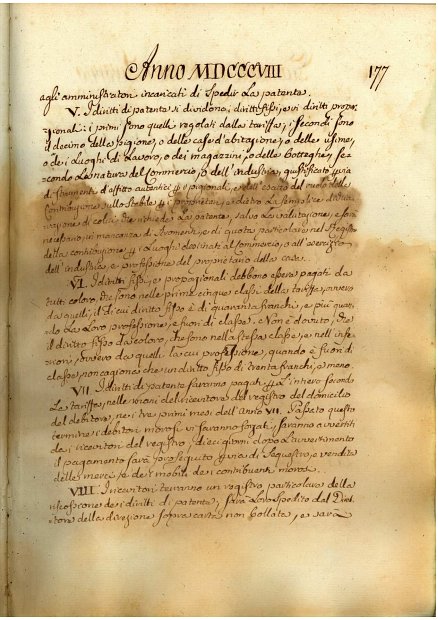 Anno MDCCCVIII
177
agli amministratori incaricati di spedir La patente.
V. I diritti di patente si dividono, diritti fissi, e in diritti propor
zionali: i primi sono quelli regolati dalla tariffa; i secondi sono
il decimo della pigione, o delle case d'abitazione, o delle usine,
o dei Luoghi di Lavoro, o dei magazzini, o delle Botteghe, se
condo La natura del Commercio, o dell'industria, giustificato
di affitto autentici
Contribuzione sullo Stabile i proprietari, e dietro La semplice
di coloro che richiede La patente, salvo La valutazione, e sarà
necessario in mancanza di
della contribuzione Luoghi destinati al Commercio, o all'esercizio
dell'industria, o professione del proprietario della casa.
VI. I diritti fissi, e proporzionali debbono essere pagati da
tutti coloro, che sono nelle prime cinque classi della tariffa, ovvero
da quelli, il di cui diritto fisso è di quaranta franchi, e più quan
do La Loro professione, è fuori di classe. Non è dovuto, che
il diritto fisso da coloro, che sono nella sesta classe, e nell'infe
riori, ovvero da quelli la cui professione, quando è fuori di
classe, non cagiona che un diritto fisso di trenta franchi, e meno.
VII. I diritti di patente saranno pagati per L'intiero secondo
La tariffa, nelle mani del ricevitore del registro del domicilio
del debitore, ne i tre primi mesi dell'Anno VII. Passato questo
termine i debitori morosi vi saranno forzati; saranno avvertiti
da i ricevitori del registro, dieci giorni dopo L'avvertimento
il pagamento sarà proseguito per via di Sequestro, e vendita
delle merci, e de' mobili dei contribuenti morosi.
VIII. I ricevitori terranno un registro particolare della
riscossione dei diritti di patente, sarà Loro spedito dal Diret
tore della divisione sopra carta non bollata, e sarà